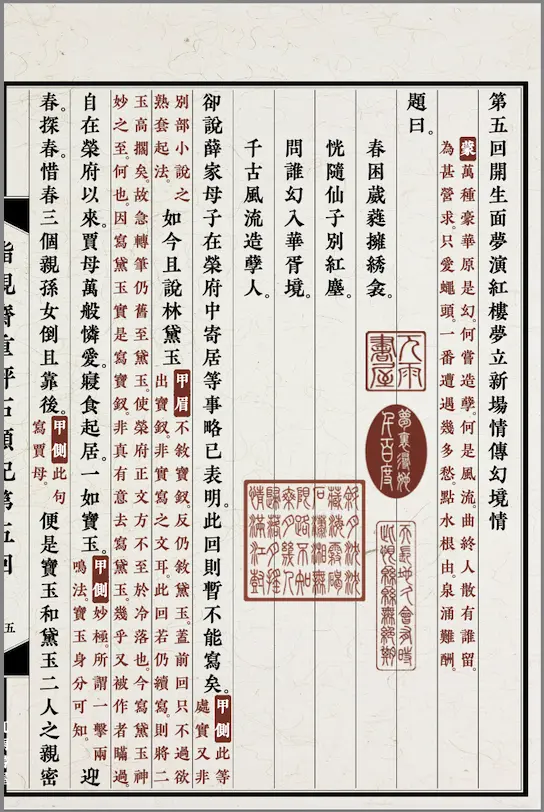 第五回開生面夢演紅樓夢立新場情傳幻境情
蒙 萬種豪華原是幻。何嘗造孽。何是風流。曲終人散有誰留。
為甚營求。只愛蠅頭。一番遭遇幾多愁。點水根由。泉涌難酬。
題曰。
春困葳蕤擁綉衾。
恍隨仙子別紅塵。
問誰幻入華胥境。
千古風流造孽人。
天長地久會有時
此恨綿綿無絕期
斜月沉沉
藏海霧碣
石瀟湘無
限路不知
乘月幾人
歸落月搖
情滿江樹
卻說薛家母子在榮府中寄居等事略已表明。此回則暫不能寫矣。甲側 此等
處實又非
別部小說之
熟套起法。
如今且說林黛玉 甲眉 不敘寶釵。反仍敘黛玉。蓋前回只不過欲
出寶釵。非實寫之文耳。此回若仍續寫。則將二
玉高擱矣。故急轉筆仍舊至黛玉。使榮府正文方不至於冷落也。今寫黛玉神
妙之至。何也。因寫黛玉實是寫寶釵。非真有意去寫黛玉。幾乎又被作者瞞過。
自在榮府以來。賈母萬般憐愛。寢食起居。一如寶玉。甲側 妙極。所謂一擊兩
鳴法。寶玉身分可知。
迎
春。探春。惜春三個親孫女倒且靠後。甲側 此句
寫賈母。
便是寶玉和黛玉二人之親密
五